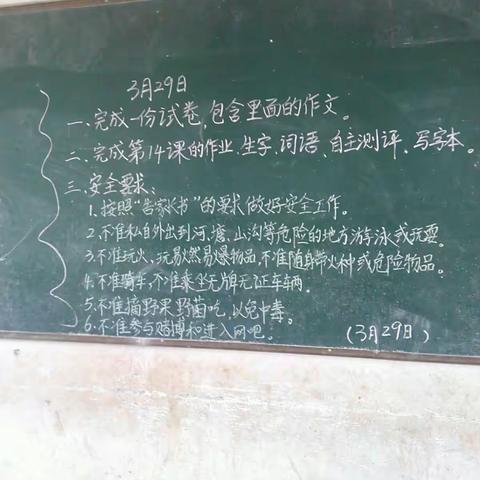 3月29日
一、完成一份试卷,包含里面的作文。
二、完成第14课的作业、生字、词语、自主测评、写字本。
三、安全要求:
1、按照"告家长书"的要求做好安全工作。
2、不准私自外出到河、塘、山沟等危险的地方游泳或玩耍。
3、不准玩火、玩易燃易爆物品,不准随身带火种或危险物品。
4、不准骑车,不准乘坐无牌无证车辆。
5、不准摘野果野菌吃,以免中毒。
6、不准参与赌博和进入网吧。
(3月29日)